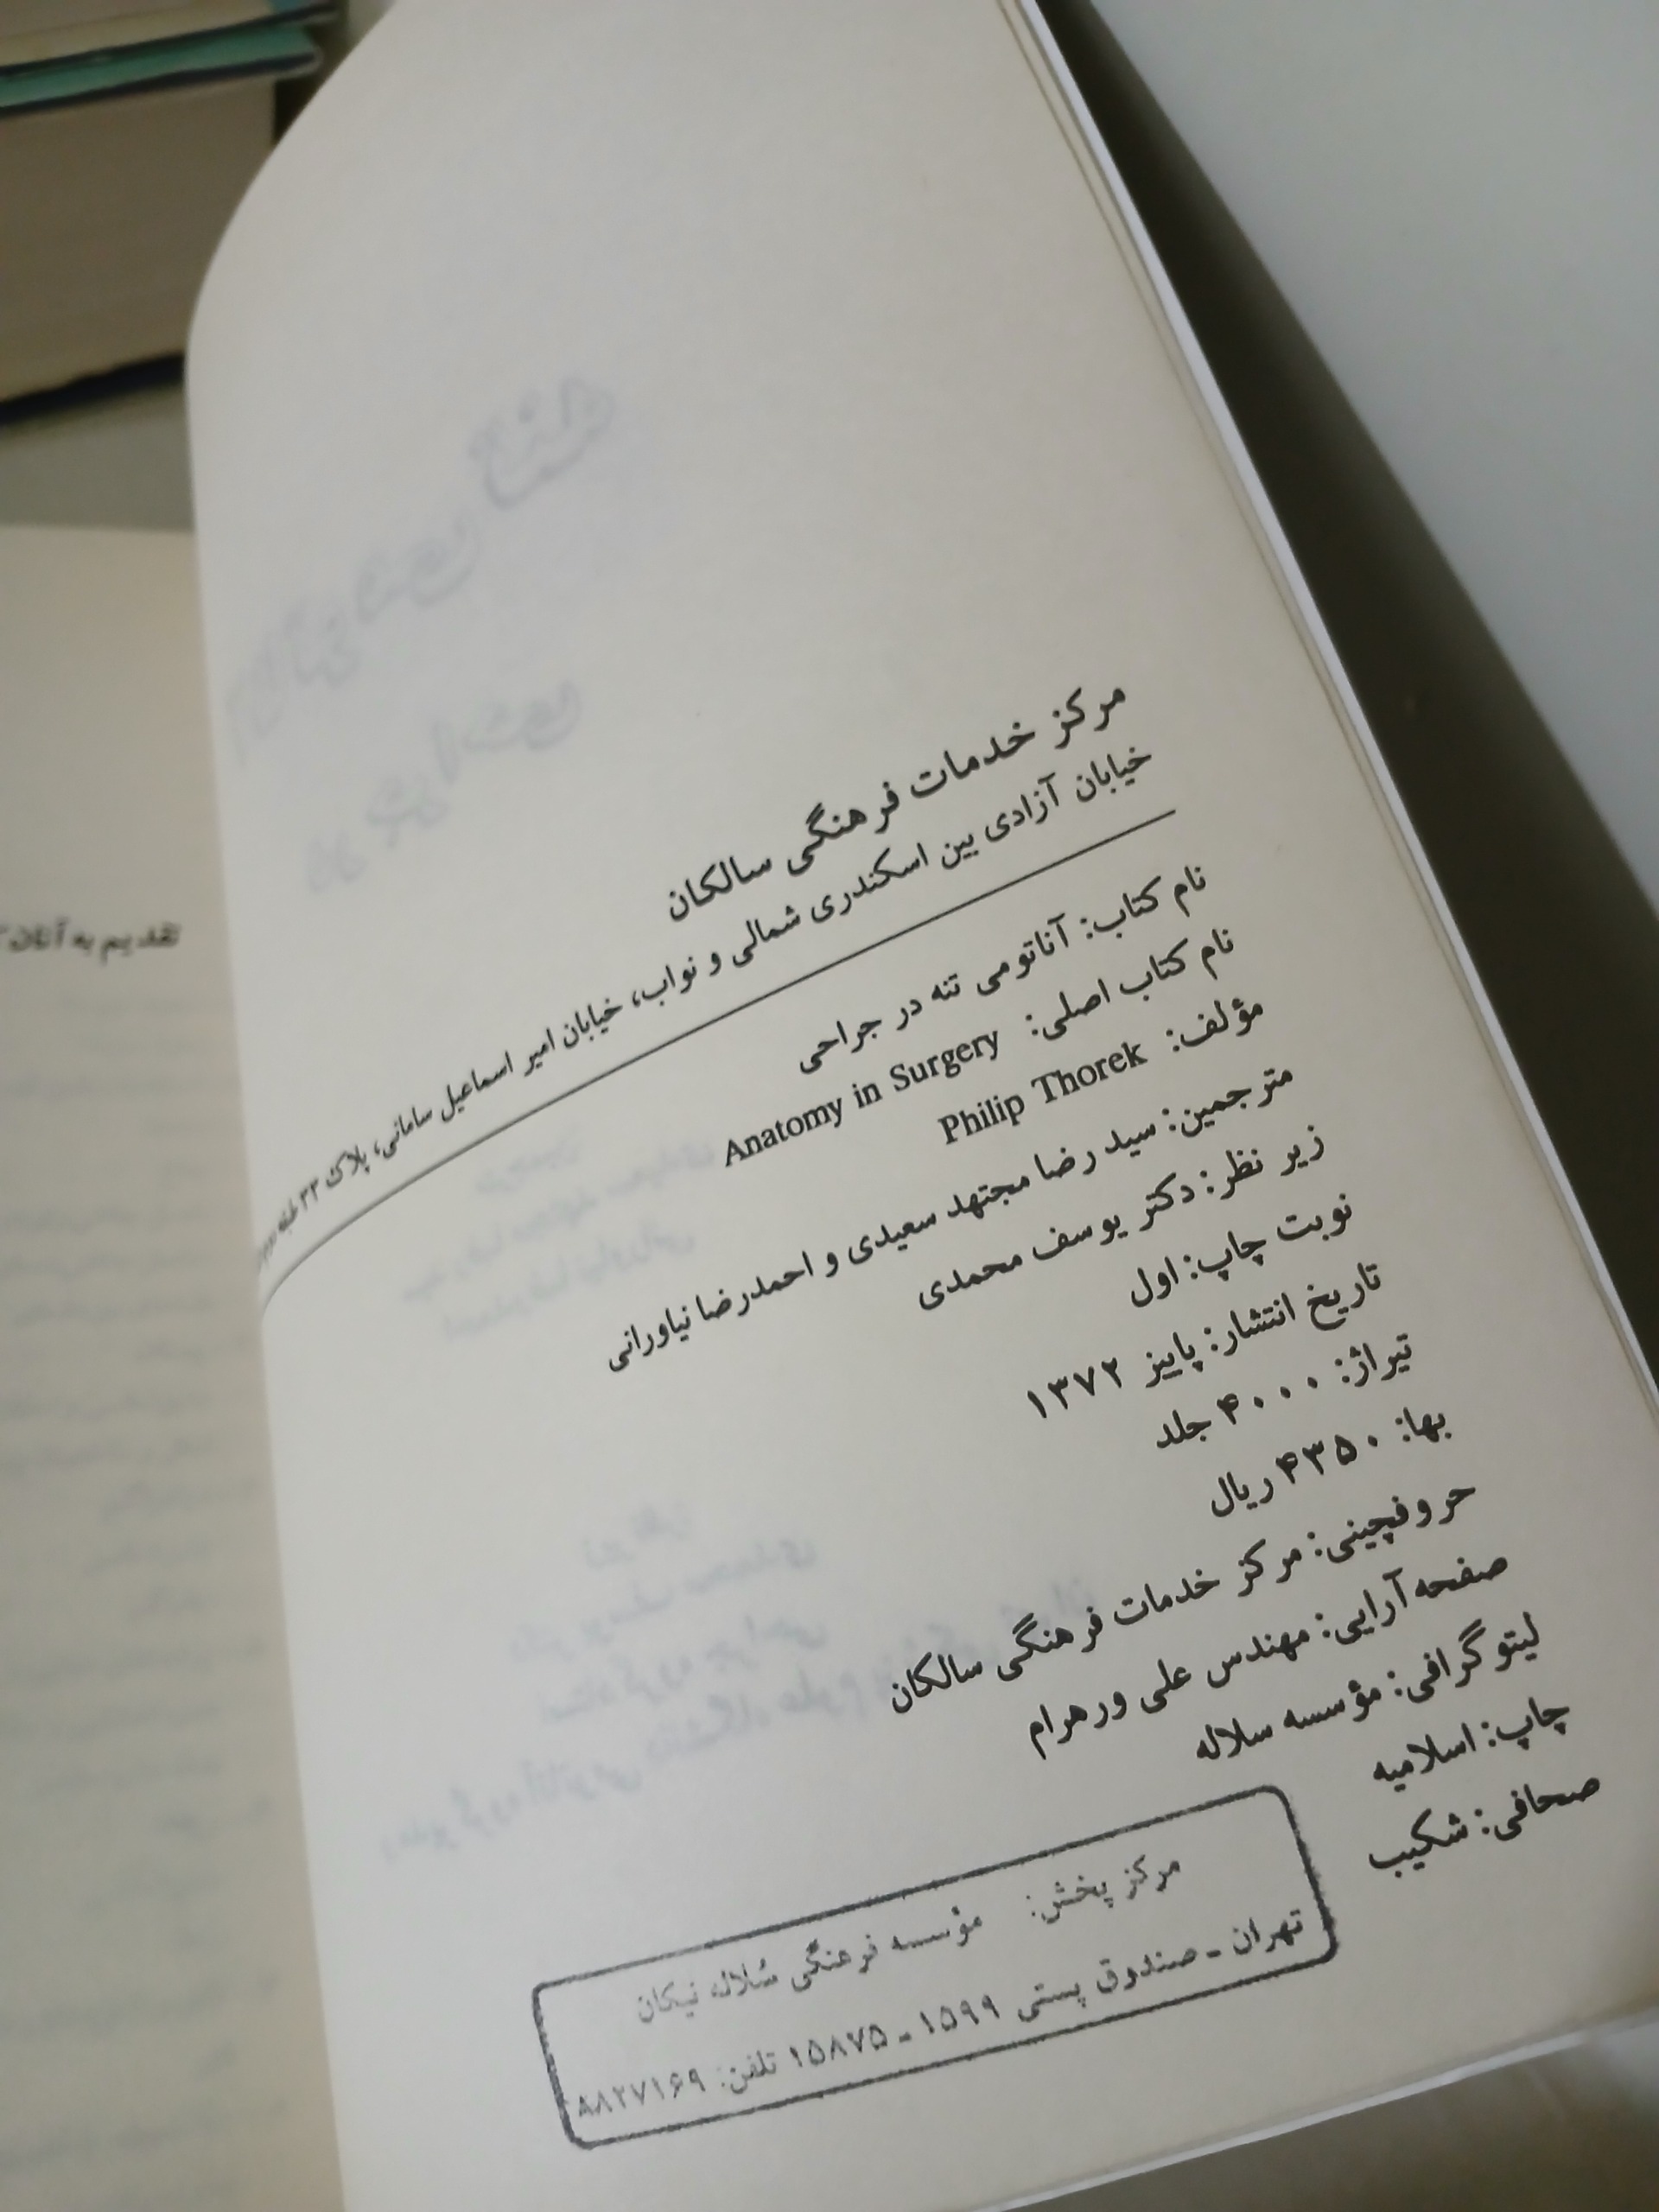 مرکز خدمات فرهنگی سالکان
خیابان آزادی بین اسکندری شمالی و نواب، خیابان امیر اسماعیل سامانی، پلاک ۳۳ طبقه
نام کتاب: آناتومی تنه در جراحی
نام کتاب اصلی: Anatomy in Surgery
مؤلف: Philip Thorek
مترجمین: سید رضا مجتهد سعیدی و احمدرضا نیاورانی
زیر نظر: دکتر یوسف محمدی
نوبت چاپ: اول
تاریخ انتشار: پاییز ۱۳۷۲
تیراژ: ۴۰۰۰ جلد
بها: ۴۳۵۰ ریال
حروفچینی: مرکز خدمات فرهنگی سالکان
صفحه آرایی: مهندس علی ورهرام
لیتوگرافی: مؤسسه سلاله
چاپ: اسلامیه
صحافی: شکیب
مرکز پخش: مؤسسه فرهنگی سُلاله نیکان
تهران - صندوق پستی ۱۵۹۹ - ۱۵۸۷۵ تلفن: ۸۸۲۷۱۶۹
تقدیم به آنان